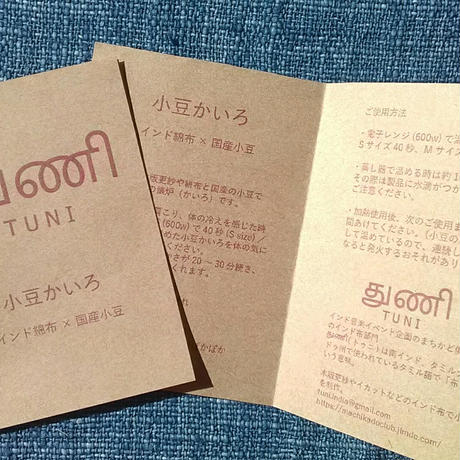 துணி
TUNI
小豆かいろ
インド綿布 × 国産小豆
小豆かいろ
インド綿布 × 国産小豆
版更紗や綿布と国産の小豆で
懐炉(かいろ)です。
肩こり、体の冷えを感じた時
(600w)で40秒(S size)/
めた小豆かいろを体の気に
ください。
かさが20〜30分続き、
くれます。
ぽかぽか
ご使用方法
・電子レンジ(600w)で温
Sサイズ40秒、Mサイズ
・蒸し器で温める時は約1
その際は製品に水滴がつか
ご注意ください。
・加熱使用後、次のご使用ま
間あけてください。(小豆の
して温めているので、連続し
なると発火するおそれがあり
துணி
TUNI
インド音楽イベント企画のまちかど倶
のインド布部門
துணி(トゥニ)は南インド、タミルナ
ドゥ州で使われているタミル語で「布
いう意味。
木版更紗やイカットなどのインド布で小
を制作。
tuni.india@gmail.com
https://machikadoclub.jimdo.com/